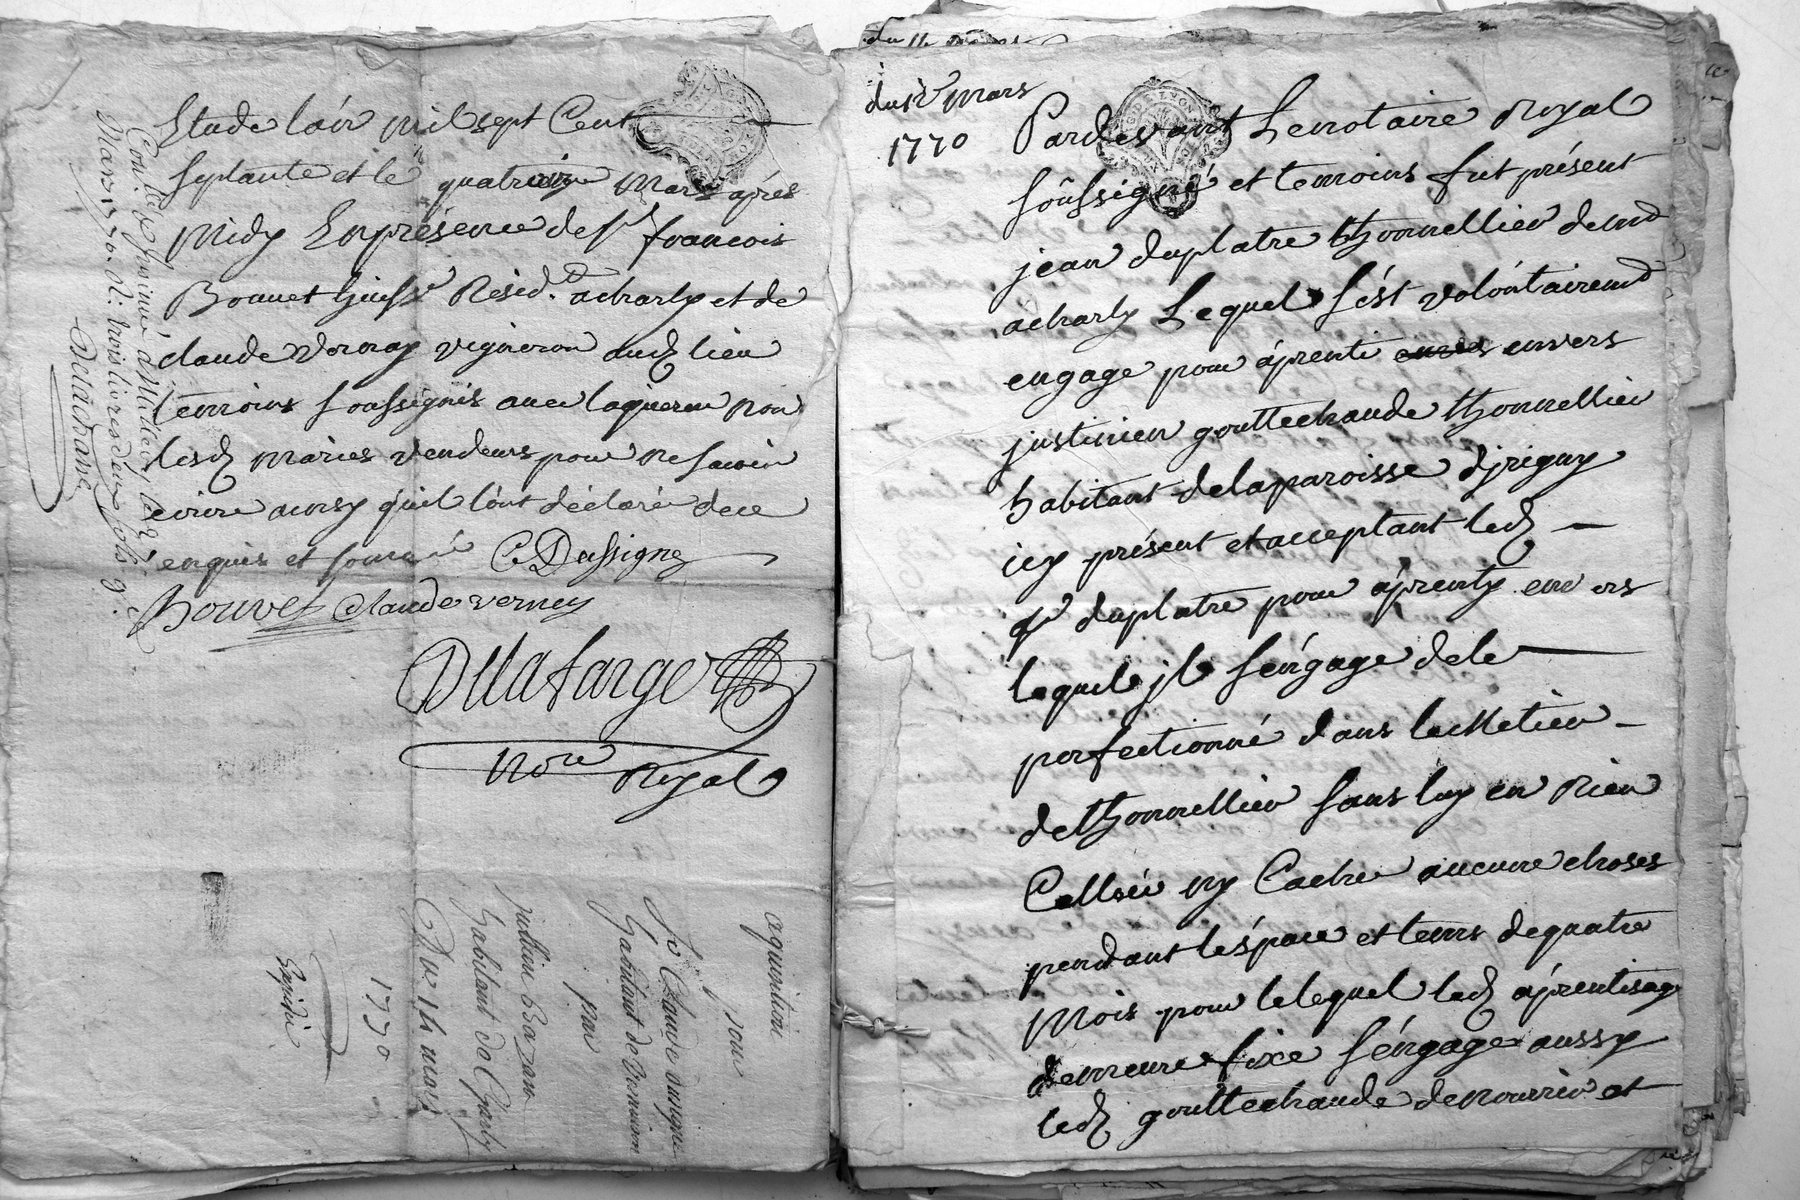 Etude l'an mil sept Cent
septante et le quatrieme Mars aprés
Midy En présence de sr francois
Bouvet huissr Résidt a charly et de
claude Vernay vigneron audt lieu
temoins soussignés avec laquereur non
lesdt mariés vendeurs pour ne savoir
ecrire ainsy quil lont déclaré de ce
enquis et sommé C Dussigne
Bouvet Claude verney
Dellafarge
Nore Royal
Con.lé
Mars 1770. R: trois livres deux sols
Delachasse
aquisition
pour
sr Claude dusigne
habitant de vernaison
par
jullien Bazan
habitant de Charly
Du 14 mars
1770
Expédié
du 12 Mars
1770
Pardevant Le notaire Royal
soûssigné et temoins fut présent
jean duplatre thonnellier demt
a charly Lequel s'est volontairemt
engagé pour áprenti envers
justinien gouttechaude thonnellier
habitant de la paroisse d'jrigny
icy présent et acceptant ledt
sr duplatre pour áprenty envers
lequel jl sengage de le
perfectionné dans le Metier
de thonnellier sans luy en Rien
Cellrér ny Cacher aucune choses
pendant l'éspace et tems de quatre
Mois pour le lequel ledt áprentisage
demeure fixe s'engage aussy
ledt gouttechaude de nourrir et